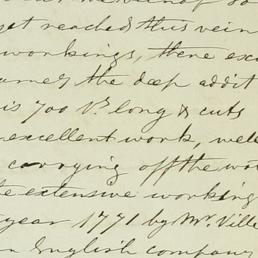 not reached this vein
workings, there exc
the deep addit
is 700 Vs long & cuts
excellent work, well
carrying off the wat
e extensive working
year 1771 by Mr. Ville
n English company